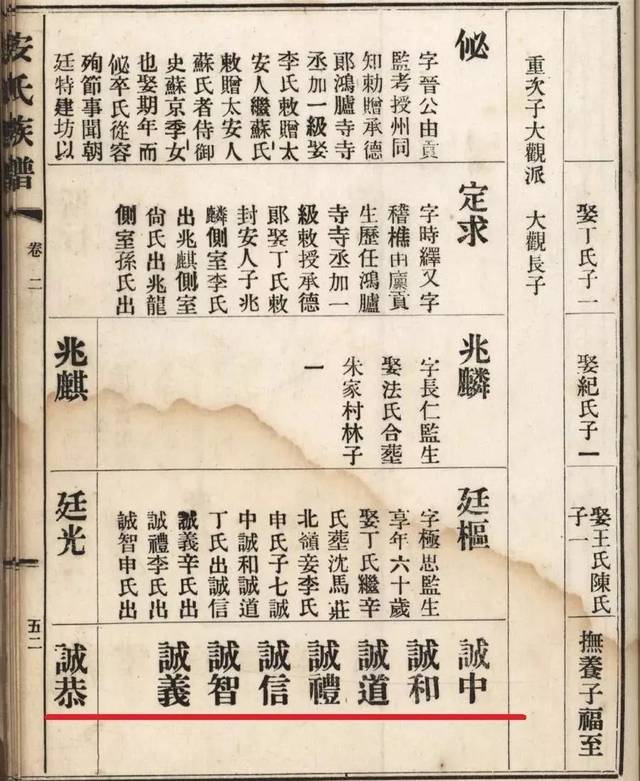 娶丁氏子一
娶紀氏子一
娶王氏陳氏
子一
撫養子福至
重次子大觀派　大觀長子
佖
字晉公由貢
監考授州同
知勅贈承德
郎鴻臚寺寺
丞加一級娶
李氏敕贈太
安人繼蘇氏
敕贈太安人
蘇氏者侍御
史蘇京季女
也娶期年而
佖卒氏從容
殉節事聞朝
廷特建坊以
定求
字時繹又字
稽樵由廩貢
生歷任鴻臚
寺寺丞加一
級敕授承德
郎娶丁氏敕
封安人子兆
麟側室李氏
出兆麒側室
尙氏出兆龍
側室孫氏出
兆麟
字長仁監生
娶法氏合葬
朱家村林子
一
兆麒
廷樞
字極思監生
享年六十歲
娶丁氏繼辛
氏葬沈馬莊
北嶺妾李氏
申氏子七誠
中誠和誠道
丁氏出誠信
誠義辛氏出
誠禮李氏出
誠智申氏出
廷光
誠中
誠和
誠道
誠禮
誠信
誠智
誠義
誠恭
安氏族譜
卷二
五二